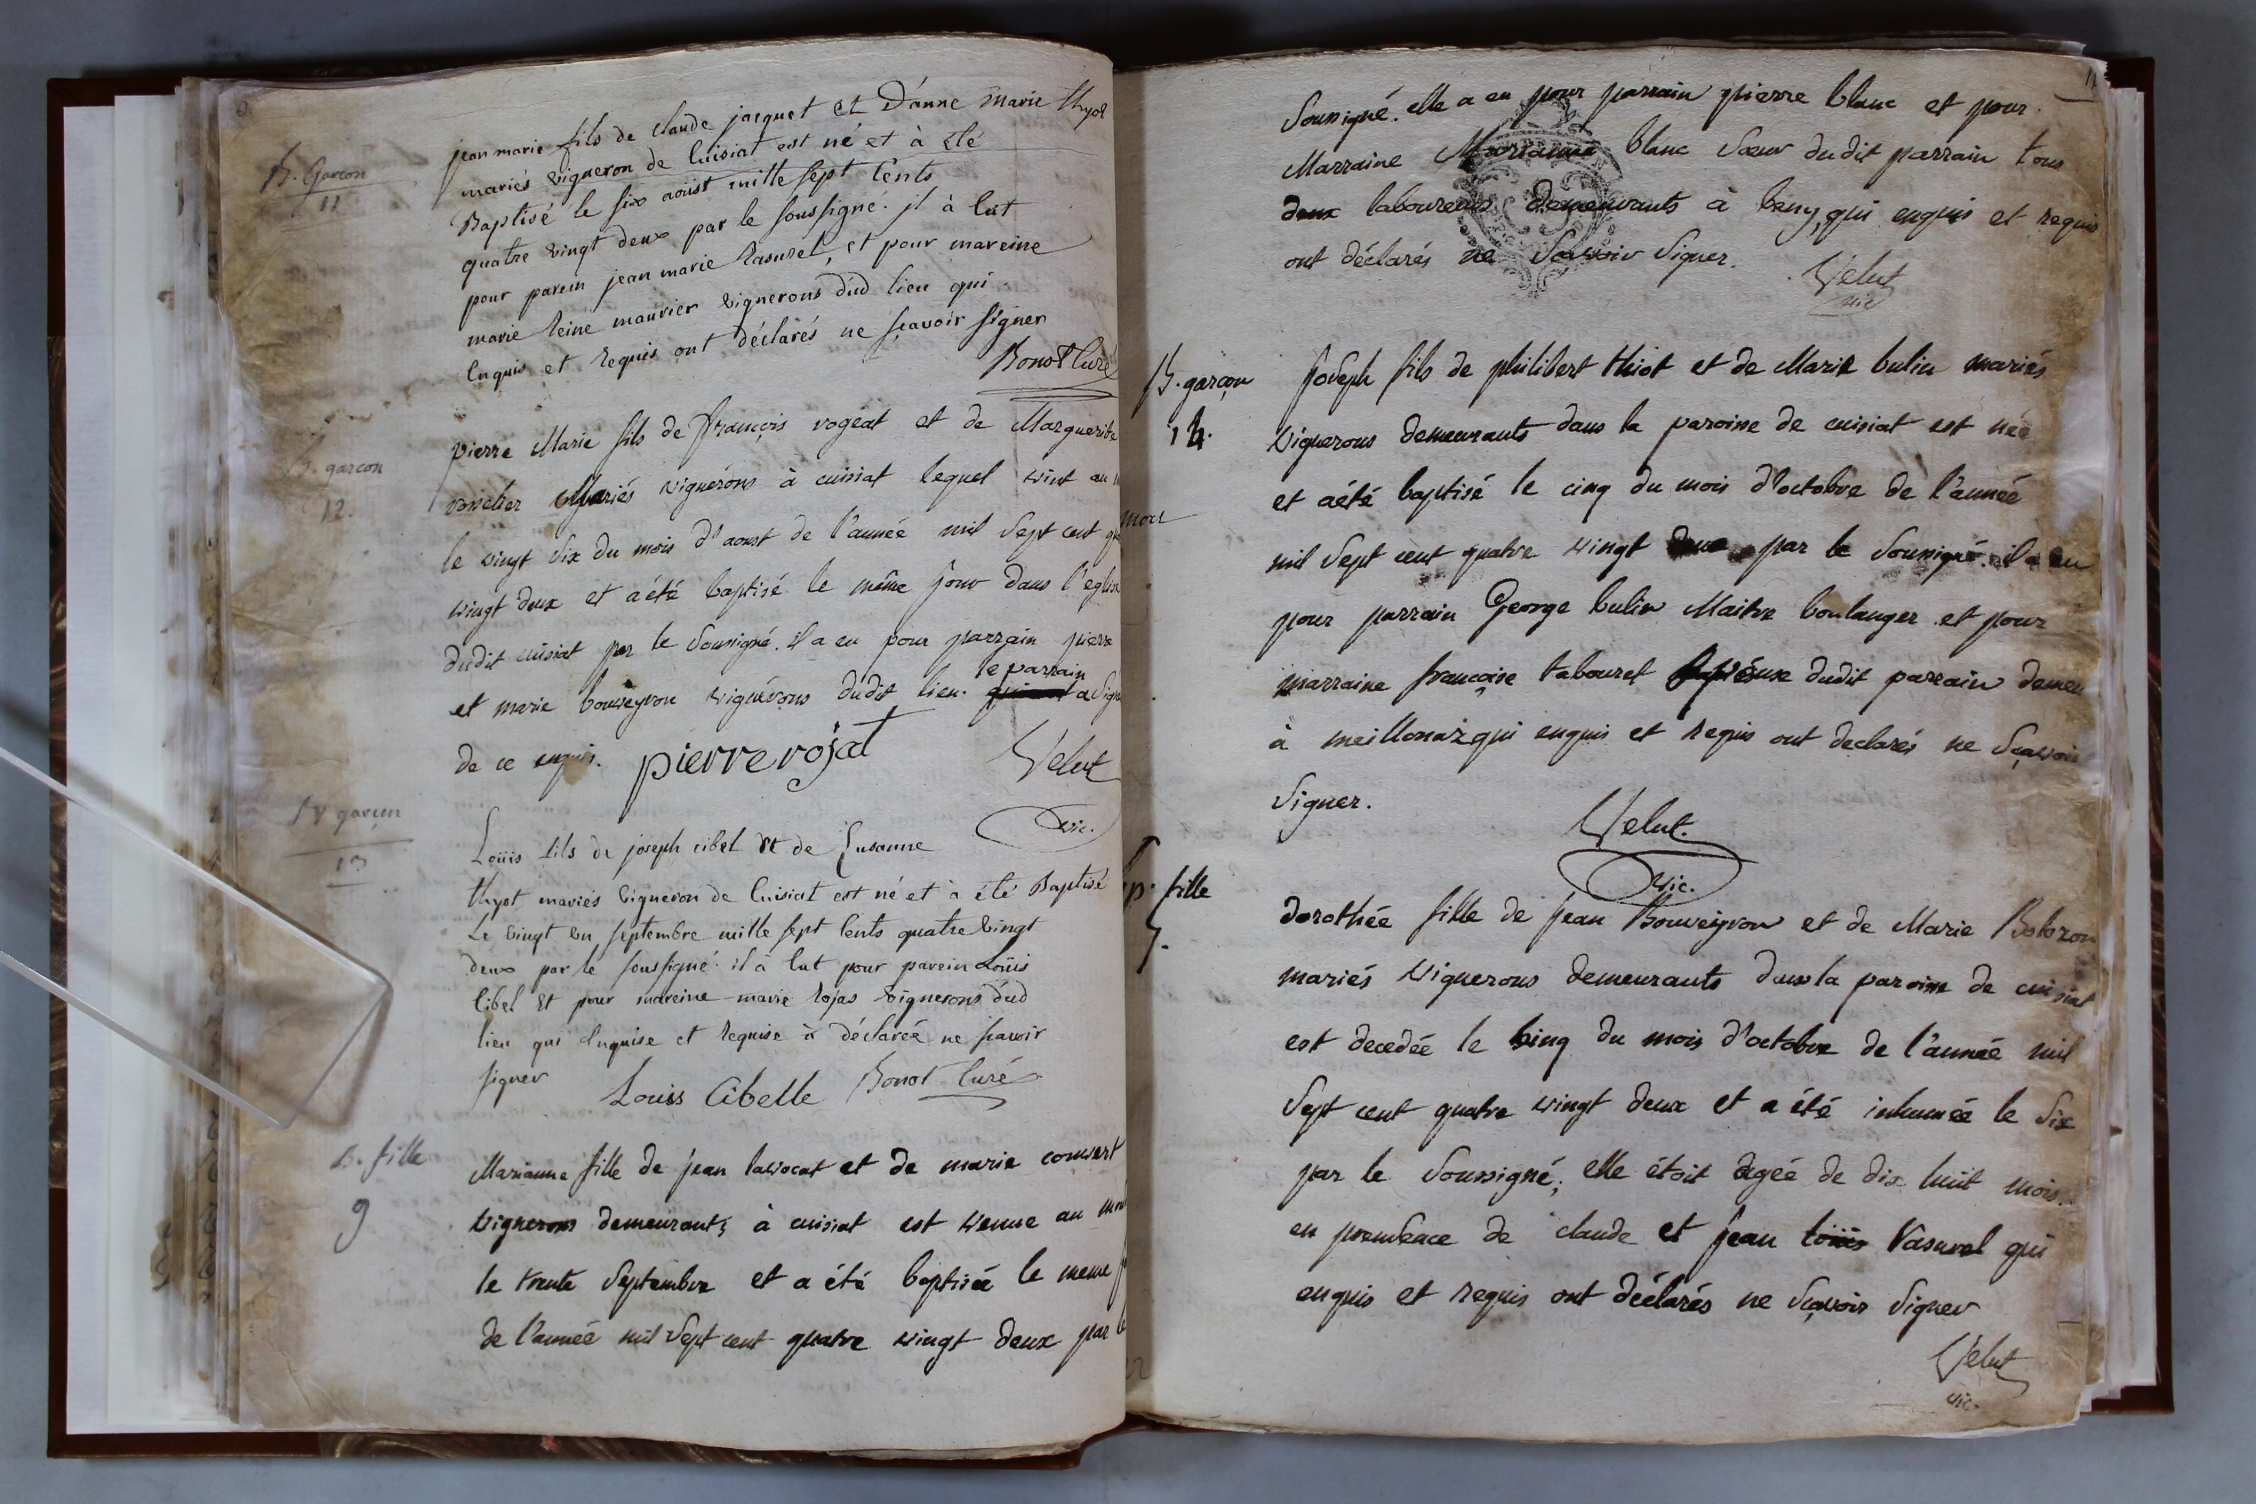 B. Garçon
11
jean marie fils de claude jacquet et D'anne marie thyot
mariés vigneron de Cuisiat est né et à été
Baptisé le six aoüst mille sept Cents
quatre vingt deux par le soussigné. jl à Eut
pour parein jean marie Rasurel, et pour mareine
marie Reine maurier vignerons dud lieu qui
Enquis et Requis ont déclarés ne sçavoir signer
Bonot Curé
B. garcon
12.
pierre Marie fils de françois rogeat et de Marguerite
Mariés vignérons à cuisiat lequel vint au
mon
le vingt six du mois d'aoust de l'année mil sept cent
vingt deux et a été baptisé le même jour dans l'eglise
dudit cuisiat par le soussigné. il a eu pour parrain pierre
le parrain
et marie bouveyron vignérons dudit lieu. a signé
de ce enquis. pierre rojat Velut
vic.
garçon
13
Loüis fils de joseph cibel et de Susanne
thyot mariés vigneron de Cuisiat est né et à été Baptisé
Le vingt un septembre mille sept Cents quatre vingt
deux par le soussigné. il à Eut pour parein Loüis
Cibel Et pour mareine marie Rojas vignerons dud
lieu qui Enquise et Requise à déclareé ne savoir
signer Louis Cibelle Bonot Curé
B. fille
9
Marianne fille de jean lavocat et de marie convert
vignerons demeurants à cuisiat est venue au
le trente septembre et a été baptisée le meme
de l'année mil sept cent quatre vingt deux par le
11
soussigné. elle a eu pour parrain pierre blanc et pour
Marraine Marianne blanc soeur dudit parrain tous
deux laboureurs demeurants à beny, qui enquis et requis
ont déclarés ne sçavoir signer. Velut
vic
B. garçon
14.
joseph fils de philibert thiot et de Marie bulin mariés
vignerons demeurants dans la paroisse de cuisiat est née
et a été baptisé le cinq du mois d'octobre de l'année
mil sept cent quatre vingt deux par le soussigné. il a eu
pour parrain George bulin Maitre boulanger et pour
marraine françoise tabouret dudit parrain demeu
à meillonaz qui enquis et requis ont declarés ne sçavoir
signer. Velut.
vic.
fille
dorothée fille de jean Bouveyron et de Marie Bolozon
mariés vignerons demeurants dans la paroisse de cuisiat
est decedée le cinq du mois d'octobre de l'année mil
sept cent quatre vingt deux et a été inhumée le six
par le soussigné; elle étoit agée de dix huit mois.
en presence de claude et jean loüis Rasurel qui
enquis et requis ont déclarés ne sçavoir signer
Velut
vic.